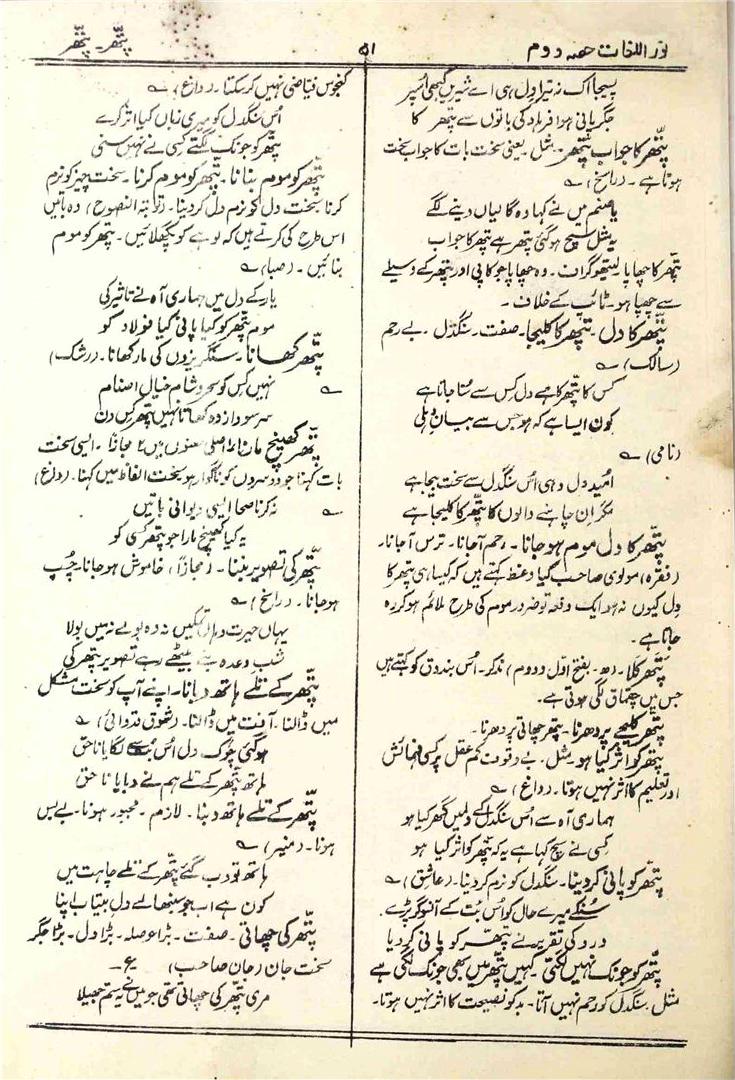 نور اللغات حصہ دوم
۵۱
پتّھر۔ پتّھر
پسیجا اک نہ تیرا دل ہی اے شیریں کبھی اُسپر
جگر پانی ہوا فرہاد کی باتوں سے پتھر کا
پتّھر کا جواب پتّھر۔ مثل۔ یعنی سخت بات کا جواب سخت
ہوتا ہے۔ (راسخ) ؎
یا صنم میں نے کہا وہ گالیاں دینے لگے
یہ مثل سچ ہو گئی پتھر ہے پتھر کا جواب
پتّھر کا چھاپا۔ لیتھو گراف۔ وہ چھاپا جو کاپی اور پتھر کے وسیلے
سے چھپا ہو۔ ٹائپ کے خلاف۔
پتّھر کا دل۔ پتّھر کا کلیجا۔ صفت۔ سنگدل۔ بے رحم
(سالک) ؎
کس کا پتّھر کا ہے دل کس سے سُنا جاتا ہے
کون ایسا ہے کہ ہو جس سے بیانِ دہلی
(نامی) ؎
اُمید دل دہی اُس سنگدل سے سخت بیجا ہے
مگر ان چاہنے والوں کا پتّھر کا کلیجا ہے
پتّھر کا دل موم ہو جانا۔ رحم آجانا۔ ترس آجانا۔
(فقرہ) مولوی صاحب گیا وعظ کہتے ہیں کہ کیسا ہی پتھر کا
دل کیوں نہ ہو ایک دفعہ تو ضرور موم کی طرح ملائم ہو کر رہ
جاتا ہے۔
پَتَھر کَلا۔ (ھ۔ بفتح اوّل و دوم) مذکر۔ اُس بندوق کو کہتے ہیں
جس میں چقماق لگی ہوتی ہے۔
پتّھر کلیجے پر دھرنا۔ پتھر چھاتی پر دھرنا۔
پتھر کو اثر کیا ہو۔ مثل۔ بے وقوف کم عقل پر کسی فہمائش
اور تعلیم کا اثر نہیں ہوتا۔ (داغ) ؎
ہماری آہ سے اُس سنگدل کے دلمیں گھر کیا ہو
کسی نے سچ کہا ہے یہ کہ پتھر کو اثر کیا ہو
پتّھر کو پانی کر دینا۔ سنگدل کو نرم کر دینا۔ (عاشق) ؎
سُنکے میرے حال کو اُس بُت کے آنسو گر پڑے
درد کی تقریر نے پتّھر کو پانی کر دیا
پتّھر کو جونک نہیں لگتی۔ کہیں پتّھر میں بھی جونک لگتی ہے
مثل۔ سنگدل کو رحم نہیں آتا۔ بد کو نصیحت کا اثر نہیں ہوتا۔
کنجوس فیّاضی نہیں کر سکتا۔ (داغ) ؎
اُس سنگدل کو میری زباں کیا اثر کرے
پتّھر کو جونک لگتے کسی نے نہیں سنی
پتّھر کو موم بنانا۔ پتّھر کو موم کرنا۔ سخت چیز کو نرم
کرنا۔ سخت دل کو نرم دل کر دینا۔ (توبۃ النصوح) وہ باتیں
اس طرح کی کرتے ہیں کہ لوہے کو پگھلائیں۔ پتھر کو موم
بنائیں۔ (صبا) ؎
یار کے دل میں ہماری آہ نے تاثیر کی
موم پتّھر کو کیا پانی کیا فولاد کو
پتّھر کھانا۔ سنگریزوں کی مار کھانا۔ (رشک)
؎ نہیں کس کو سحر و شام خیالِ اصنام
سر سودا زدہ کھاتا نہیں پتھر کس دن
پتّھر کھینچ مارنا۔ ۱ اصلی معنوں میں ۲ مجازاً۔ ایسی سخت
بات کہنا جو دوسروں کو ناگوار ہو۔ سخت الفاظ میں کہنا۔ (داغ)
؎ نہ کر ناصحا ایسی دیوانی باتیں
یہ کیا کھینچ مارا جو پتھر کسی کو
پتّھر کی تصویر بننا۔ (مجازاً) خاموش ہو جانا۔ چُپ
ہو جانا۔ (راسخ) ؎
یہاں حیرت وہاں تمکیں نہ وہ بولے نہ میں بولا
شب وعدہ بنے بیٹھے رہے تصویر پتھر کی
پتّھر کے تلے ہاتھ دبانا۔ اپنے آپ کو سخت مشکل
میں ڈالنا۔ آفت میں ڈالنا۔ (شوق قدوائی) ؎
ہو گئی چوک دل اُس بُت سے لگایا ناحق
ہاتھ پتھر کے تلے ہم نے دبایا ناحق
پتّھر کے تلے ہاتھ دبنا۔ لازم۔ مجبور ہونا۔ بے بس
ہونا۔ (منیر) ؎
ہاتھ تو دب گئے پتھر کے تلے چاہت میں
کون ہے اب جو سنبھالے دل بیتاب اپنا
پتّھر کی چھاتی۔ صفت۔ بڑا حوصلہ۔ بڑا دل۔ بڑا جگر
سخت جان (جان صاحب) ع
مری پتھر کی چھاتی تھی جو میں نے یہ ستم جھیلا